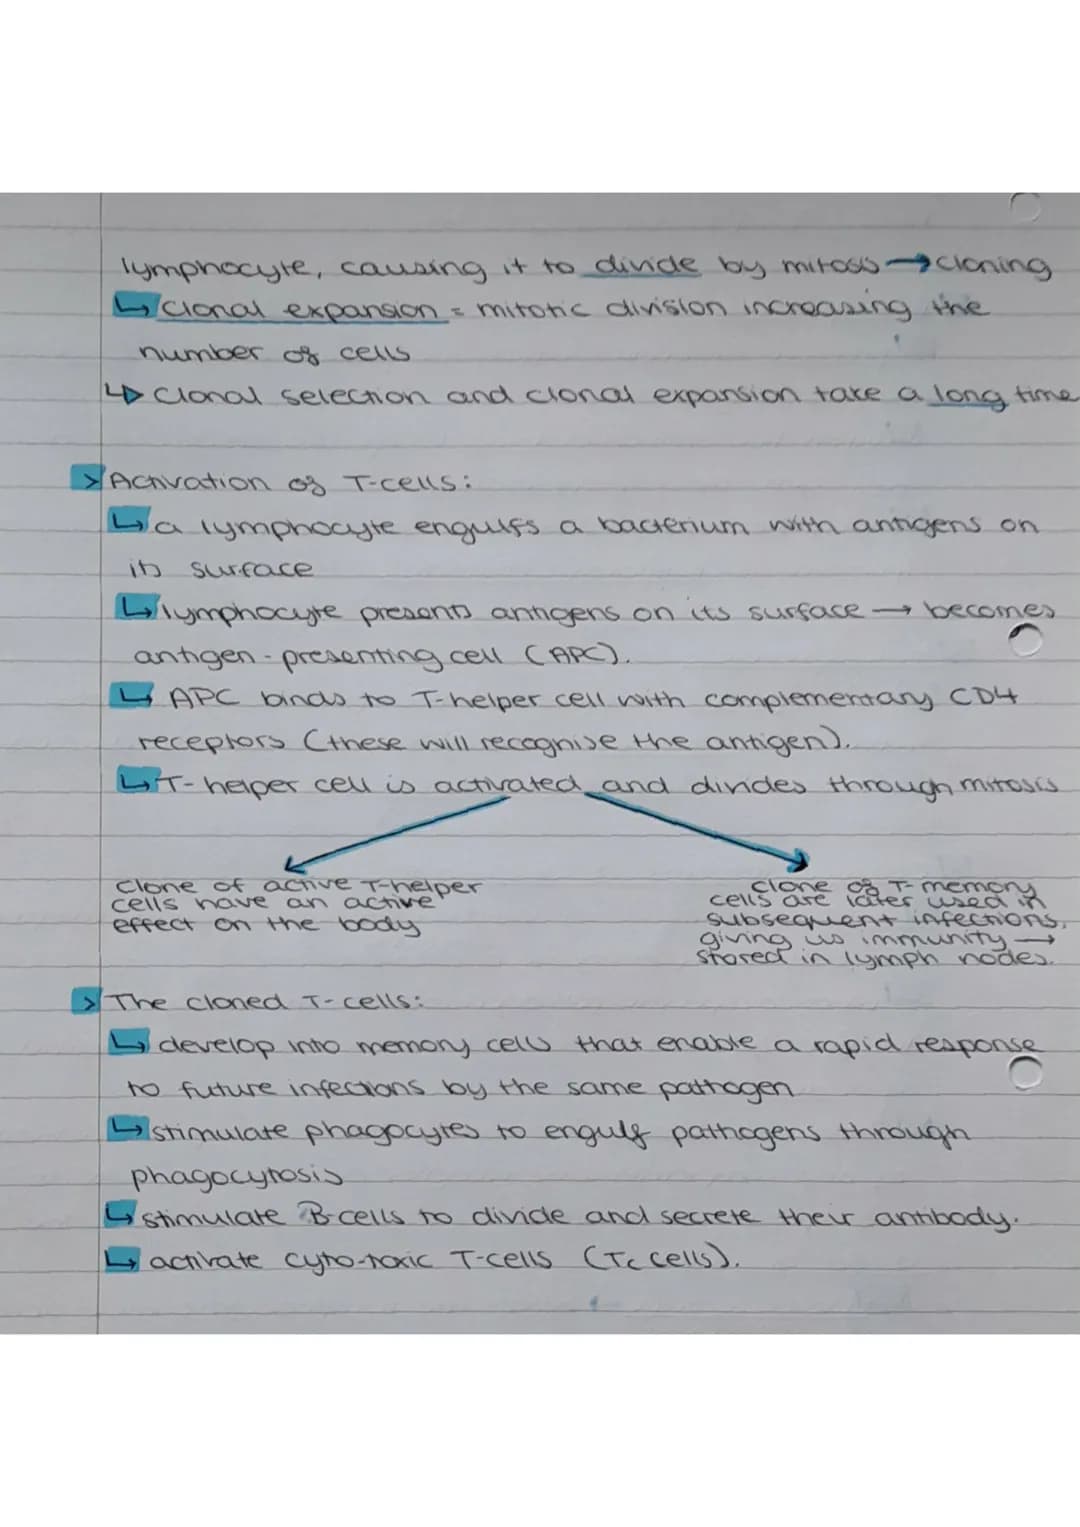 lymphocyte, causing it to divide by mitosis → cloning
↳ Clonal expansion = mitotic division increasing the
number of cells
↳ Clonal selection and clonal expansion take a long time
> Activation of T-cells:
↳ a lymphocyte engulfs a bacterium with antigens on
its surface
↳ lymphocyte presents antigens on its surface → becomes
antigen-presenting cell (APC).
↳ APC binds to T-helper cell with complementary CD4
receptors (these will recognise the antigen).
↳ T-helper cell is activated and divides through mitosis
Clone of active T-helper
cells have an active
effect on the body
Clone of T-memory
cells are later used in
subsequent infections,
giving us immunity →
stored in lymph nodes.
> The cloned T-cells:
↳ develop into memory cells that enable a rapid response
to future infections by the same pathogen
↳ stimulate phagocytes to engulf pathogens through
phagocytosis
↳ stimulate B-cells to divide and secrete their antibody.
↳ activate cyto-toxic T-cells (Tc cells).